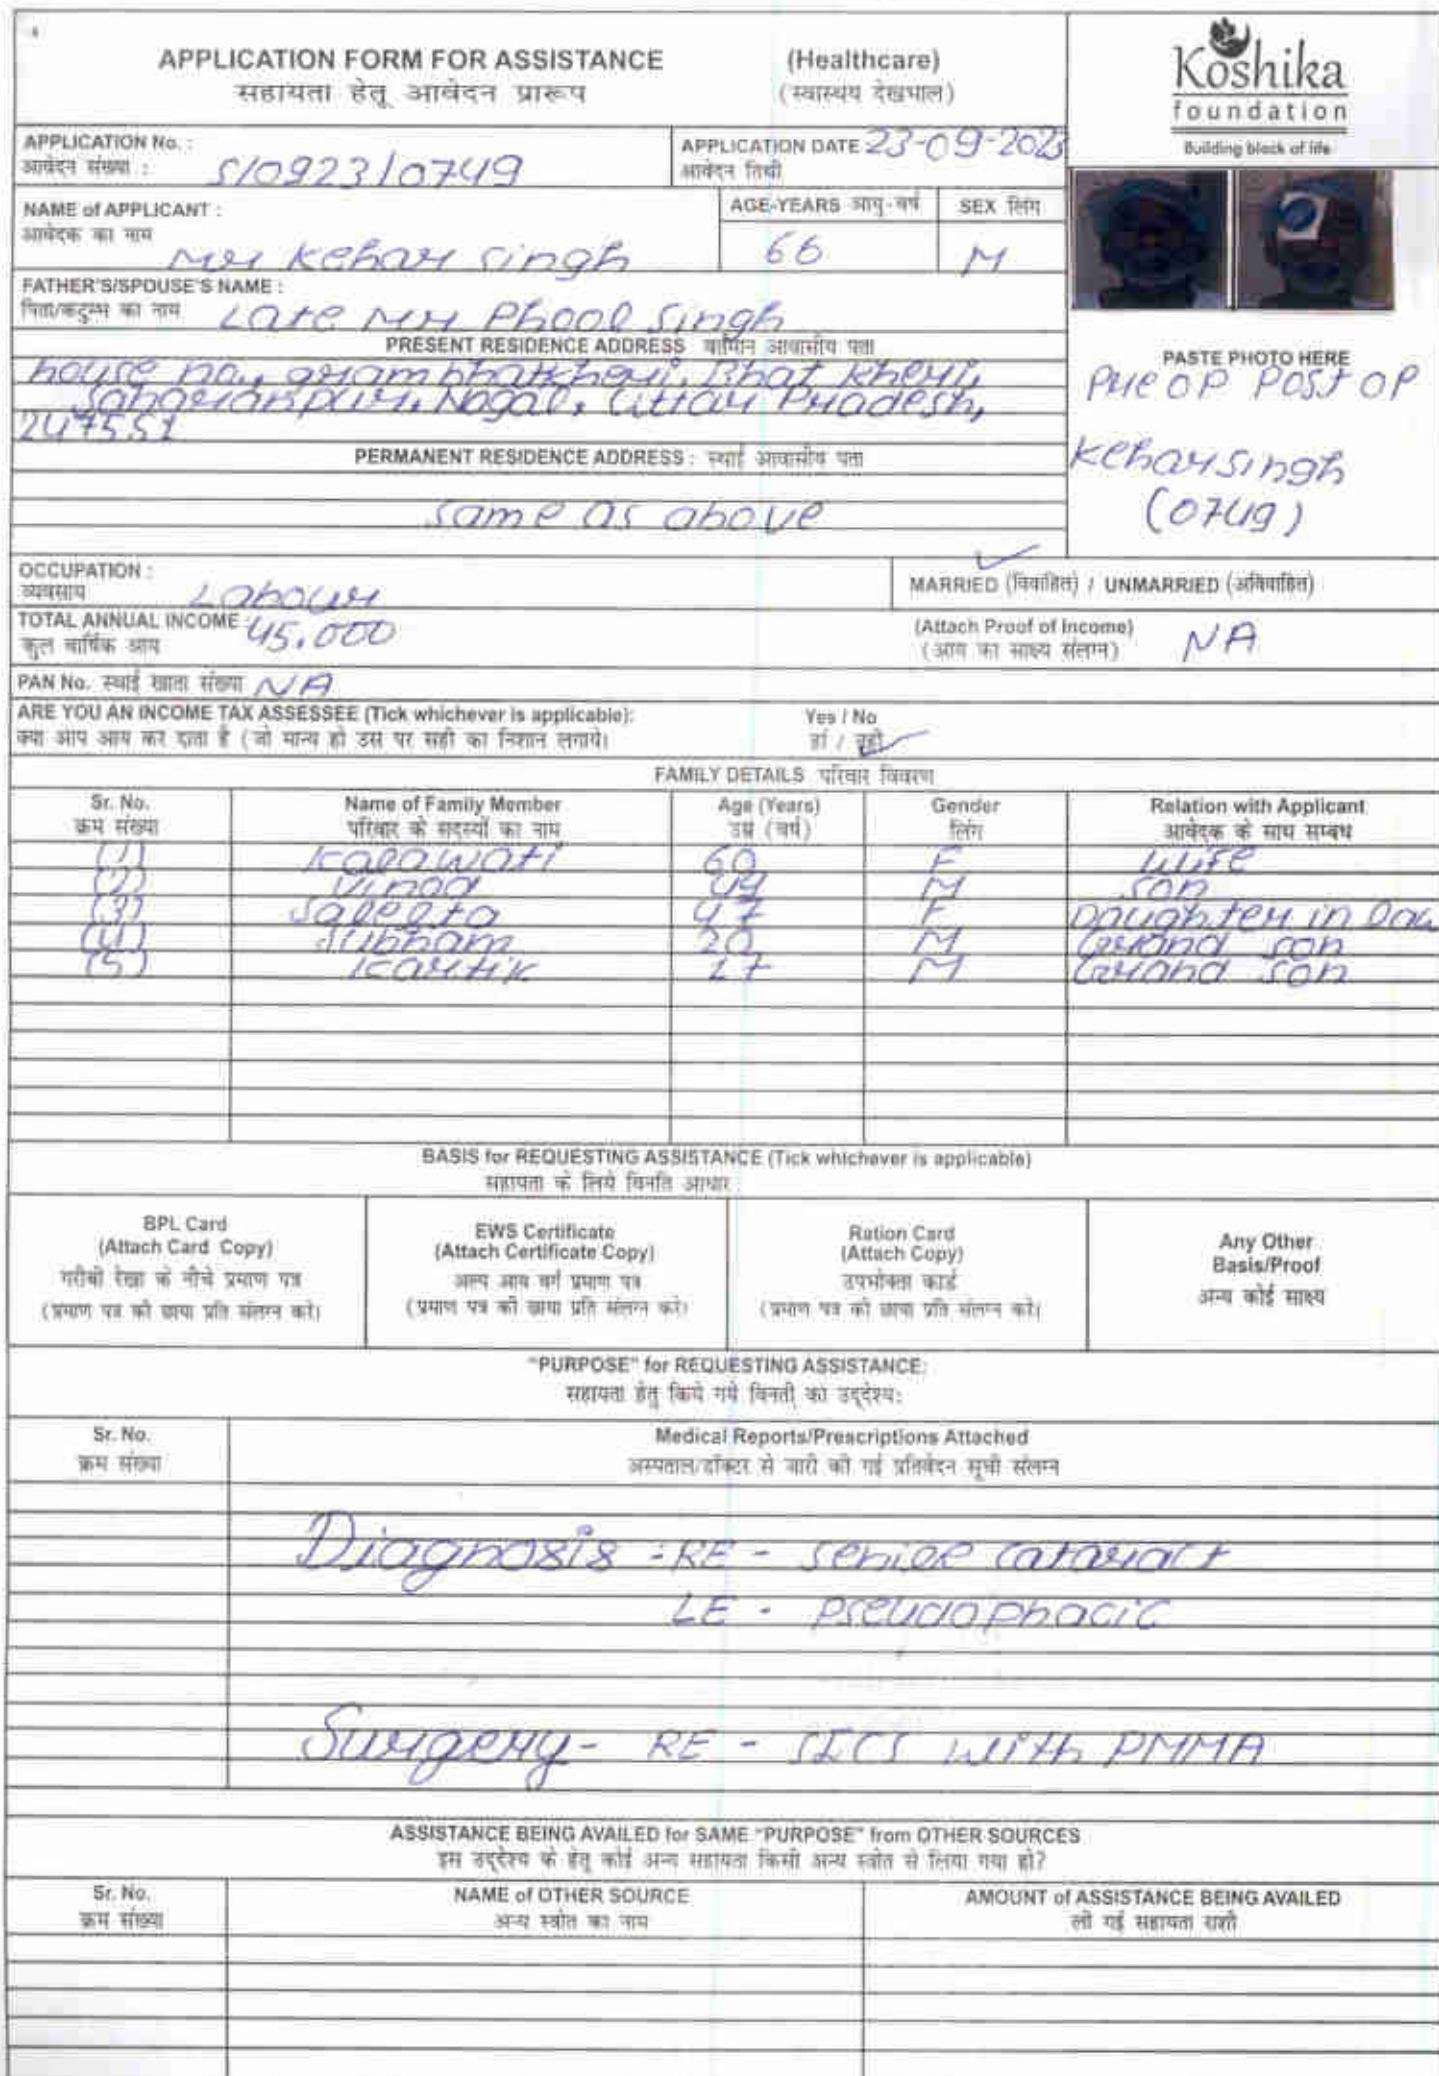 APPLICATION FORM FOR ASSISTANCE (Healthcare)
सहायता हेतू आवेदन प्रारूप (स्वास्थय देखभाल)
Koshika
foundation
Building block of life
APPLICATION No. : S/0923/0749
आवेदन संख्या :
APPLICATION DATE 23-09-2023
आवेदन तिथी
NAME of APPLICANT :
आवेदक का नाम
Mr Kehar Singh
AGE-YEARS आयु-वर्ष
66
SEX लिंग
M
FATHER'S/SPOUSE'S NAME :
पिता/कटुम्ब का नाम Late Mr Phool Singh
PRESENT RESIDENCE ADDRESS आवासीय पता
house no., gram bhatkheri, Bhat kheri,
Saharanpur, Nagal, Uttar Pradesh,
247551
PERMANENT RESIDENCE ADDRESS : स्थाई आवासीय पता
same as above
PASTE PHOTO HERE
Pre OP Post OP
Kehar singh
(0749)
OCCUPATION :
व्यवसाय Labour
MARRIED (विवाहित) / UNMARRIED (अविवाहित)
TOTAL ANNUAL INCOME : 45,000
कुल वार्षिक आय
(Attach Proof of Income) NA
(आय का साक्ष्य संलग्न)
PAN No. स्थाई खाता संख्या NA
ARE YOU AN INCOME TAX ASSESSEE (Tick whichever is applicable): Yes / No
क्या आप आय कर दाता है (जो मान्य हो उस पर सही का निशान लगाये। हां / नहीं
FAMILY DETAILS परिवार विवरण
Sr. No. Name of Family Member Age (Years) Gender Relation with Applicant
क्रम संख्या परिवार के सदस्यों का नाम उम्र (वर्ष) लिंग आवेदक के साथ सम्बंध
(1) Kalawati 60 F wife
(2) Vinod 49 M son
(3) Saleeta 47 F Daughter in law
(4) Subham 20 M Grand son
(5) Kartik 17 M Grand son
BASIS for REQUESTING ASSISTANCE (Tick whichever is applicable)
सहायता के लिये विनति आधार
BPL Card
(Attach Card Copy)
गरीबी रेखा के नीचे प्रमाण पत्र
(प्रमाण पत्र की छाया प्रति संलग्न करे।
EWS Certificate
(Attach Certificate Copy)
अल्प आय वर्ग प्रमाण पत्र
(प्रमाण पत्र की छाया प्रति संलग्न करे।
Ration Card
(Attach Copy)
उपभोक्ता कार्ड
(प्रमाण पत्र की छाया प्रति संलग्न करे।
Any Other
Basis/Proof
अन्य कोई साक्ष्य
"PURPOSE" for REQUESTING ASSISTANCE:
सहायता हेतु किये गये विनती का उद्देश्य:
Sr. No. Medical Reports/Prescriptions Attached
क्रम संख्या अस्पताल/डॉक्टर से जारी की गई प्रतिवेदन सूची संलग्न
Diagnosis :- RE - senile cataract
LE - pseudophacic
Surgery - RE - SICS with PMMA
ASSISTANCE BEING AVAILED for SAME "PURPOSE" from OTHER SOURCES
इस उद्देश्य के हेतू कोई अन्य सहायता किसी अन्य स्त्रोत से लिया गया हो?
Sr. No. NAME of OTHER SOURCE AMOUNT of ASSISTANCE BEING AVAILED
क्रम संख्या अन्य स्त्रोत का नाम ली गई सहायता राशी